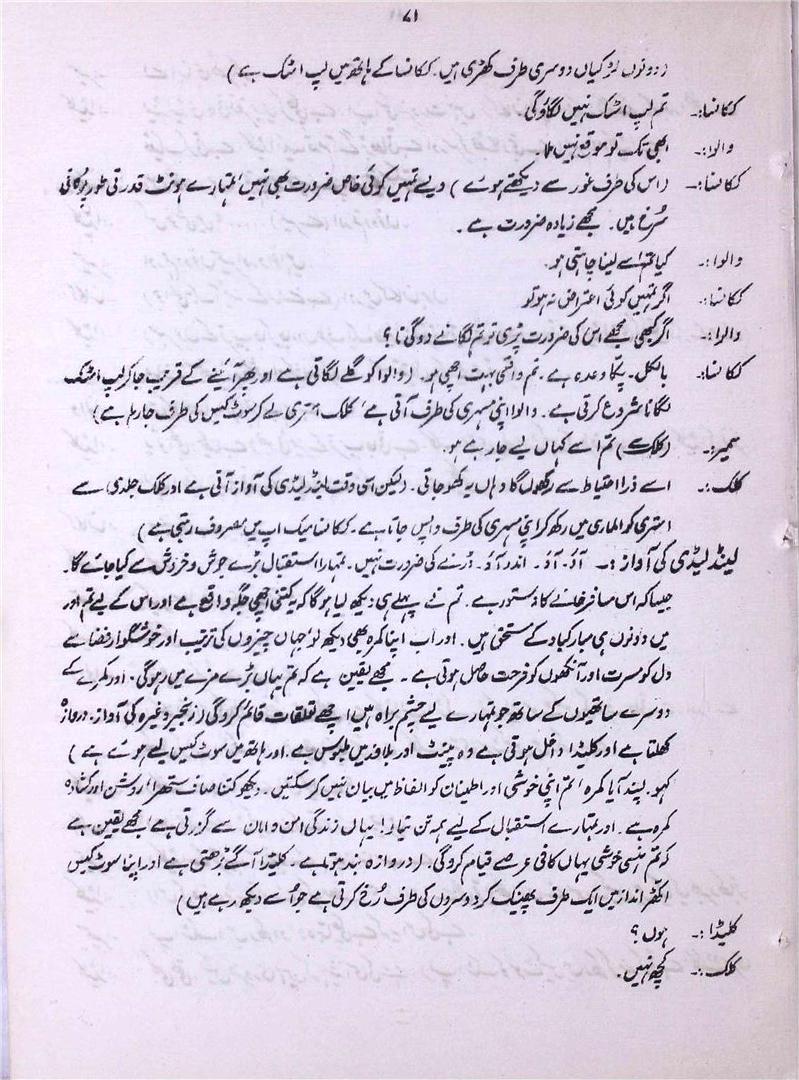 ۷۱
(دونوں لڑکیاں دوسری طرف کھڑی ہیں۔ کلکانسا کے ہاتھ میں لپ اسٹک ہے)
کلکانسا:۔ تم لپ اسٹک نہیں لگاؤ گی
والوا:۔ ابھی تک تو موقع نہیں ملا۔
کلکانسا:۔ (اس کی طرف غور سے دیکھتے ہوئے) ویسے تمہیں کوئی خاص ضرورت بھی نہیں، تمہارے ہونٹ قدرتی طور پر کافی
سُرخ ہیں۔ مجھے زیادہ ضرورت ہے۔
والوا:۔ کیا تم اسے لینا چاہتی ہو۔
کلکانسا:۔ اگر تمہیں کوئی اعتراض نہ ہو تو
والوا:۔ اگر کبھی مجھے اس کی ضرورت پڑی تو تم لگانے دو گی نا؟
کلکانسا:۔ بالکل۔ پکّا وعدہ ہے۔ تم واقعی بہت اچھی ہو۔ (والوا کو گلے لگاتی ہے اور پھر آئینے کے قریب جا کر لپ اسٹک
لگانا شروع کرتی ہے۔ والوا اپنی مسہری کی طرف آتی ہے، کلک استری لے کر سوٹ کیس کی طرف جا رہا ہے)
سمیر:۔ (کلک سے) تم اسے کہاں لیے جا رہے ہو۔
کلک:۔ اسے ذرا احتیاط سے رکھوں گا وہاں یہ کھو جاتی۔ (لیکن اسی وقت لینڈ لیڈی کی آواز آتی ہے اور کلک جلدی سے
استری کو الماری میں رکھ کر اپنی مسہری کی طرف واپس جاتا ہے۔ کلکانسا میک اپ میں مصروف رہتی ہے)
لینڈ لیڈی کی آواز:۔ آؤ۔ آؤ۔ اندر آؤ۔ ڈرنے کی ضرورت نہیں۔ تمہارا استقبال بڑے جوش و خروش سے کیا جائے گا۔
جیسا کہ اس مسافر خانے کا دستور ہے۔ تم نے پہلے ہی دیکھ لیا ہو گا کہ یہ کتنی اچھی جگہ واقع ہے اور اس کے لیے تم اور
میں دونوں ہی مبارکباد کے مستحق ہیں۔ اور اب اپنا کمرہ بھی دیکھ لو جہاں چیزوں کی ترتیب اور خوشگوار فضا سے
دل کو مسرت اور آنکھوں کو فرحت حاصل ہوتی ہے۔ مجھے یقین ہے کہ تم یہاں بڑے مزے میں رہو گی۔ اور کمرے کے
دوسرے ساتھیوں کے ساتھ جو تمہارے لیے چشم براہ ہیں، اچھے تعلقات قائم کرو گی (زنجیر وغیرہ کی آواز۔ دروازہ
کھلتا ہے اور کلیڈا داخل ہوتی ہے وہ پینٹ اور بلاؤز میں ملبوس ہے۔ اور ہاتھ میں سوٹ کیس لیے ہوئے ہے)
کہو۔ پسند آیا کمرہ، تم اپنی خوشی اور اطمینان کو الفاظ میں بیان نہیں کر سکتیں۔ دیکھو کتنا صاف ستھرا، روشن اور کشادہ
کمرہ ہے۔ اور تمہارے استقبال کے لیے ہمہ تن تیار! یہاں زندگی امن و امان سے گزرتی ہے، مجھے یقین ہے
کہ تم ہنسی خوشی یہاں کافی عرصے قیام کرو گی۔ (دروازہ بند ہوتا ہے۔ کلیڈا آگے بڑھتی ہے اور اپنا سوٹ کیس
اکھڑ انداز میں ایک طرف پھینک کر دوسروں کی طرف رُخ کرتی ہے جو اُسے دیکھ رہے ہیں)
کلیڈا:۔ ہوں؟
کلک:۔ کچھ نہیں۔